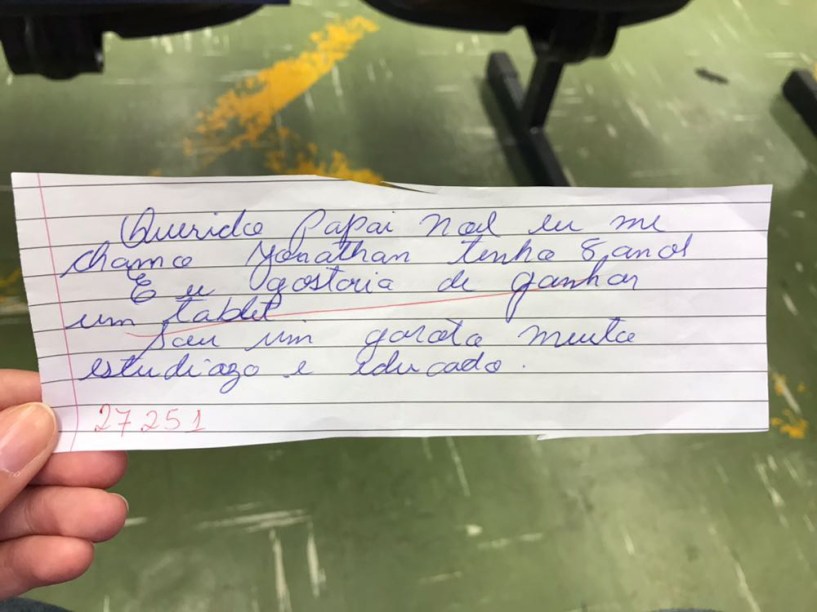 Querido Papai Noel eu me
chamo Yonathan tenho 8 anos
E u gostaria de ganhar
um tablet
sou um garoto muito
estudiazo e educado.
27251